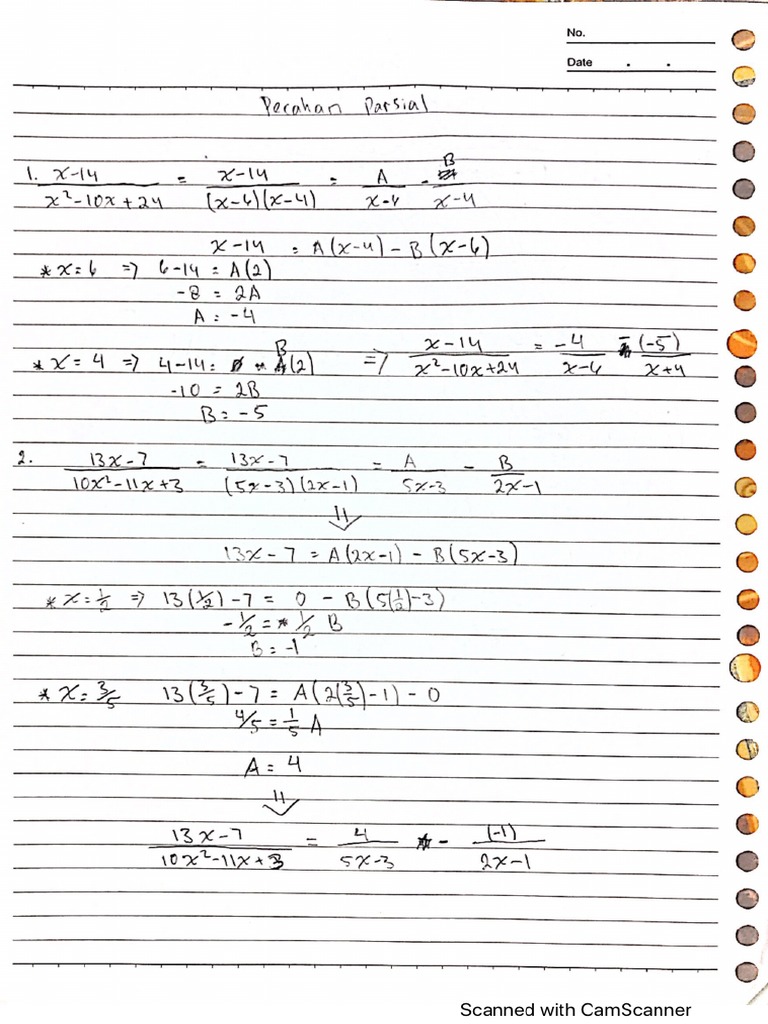 No.
Date . .
Pecahan Parsial
1. x-14 / x²-10x+24 = x-14 / (x-6)(x-4) = A / x-6 - B / x-4
x-14 = A(x-4) - B(x-6)
* x=6 => 6-14 = A(2)
-8 = 2A
A = -4
* x=4 => 4-14 = B(2) => x-14 / x²-10x+24 = -4 / x-6 - (-5) / x+4
-10 = 2B
B = -5
2. 13x-7 / 10x²-11x+3 = 13x-7 / (5x-3)(2x-1) = A / 5x-3 - B / 2x-1
13x-7 = A(2x-1) - B(5x-3)
* x=1/2 => 13(1/2)-7 = 0 - B(5(1/2)-3)
-1/2 = 1/2 B
B = -1
* x=3/5 13(3/5)-7 = A(2(3/5)-1) - 0
4/5 = 1/5 A
A = 4
13x-7 / 10x²-11x+3 = 4 / 5x-3 - (-1) / 2x-1
Scanned with CamScanner